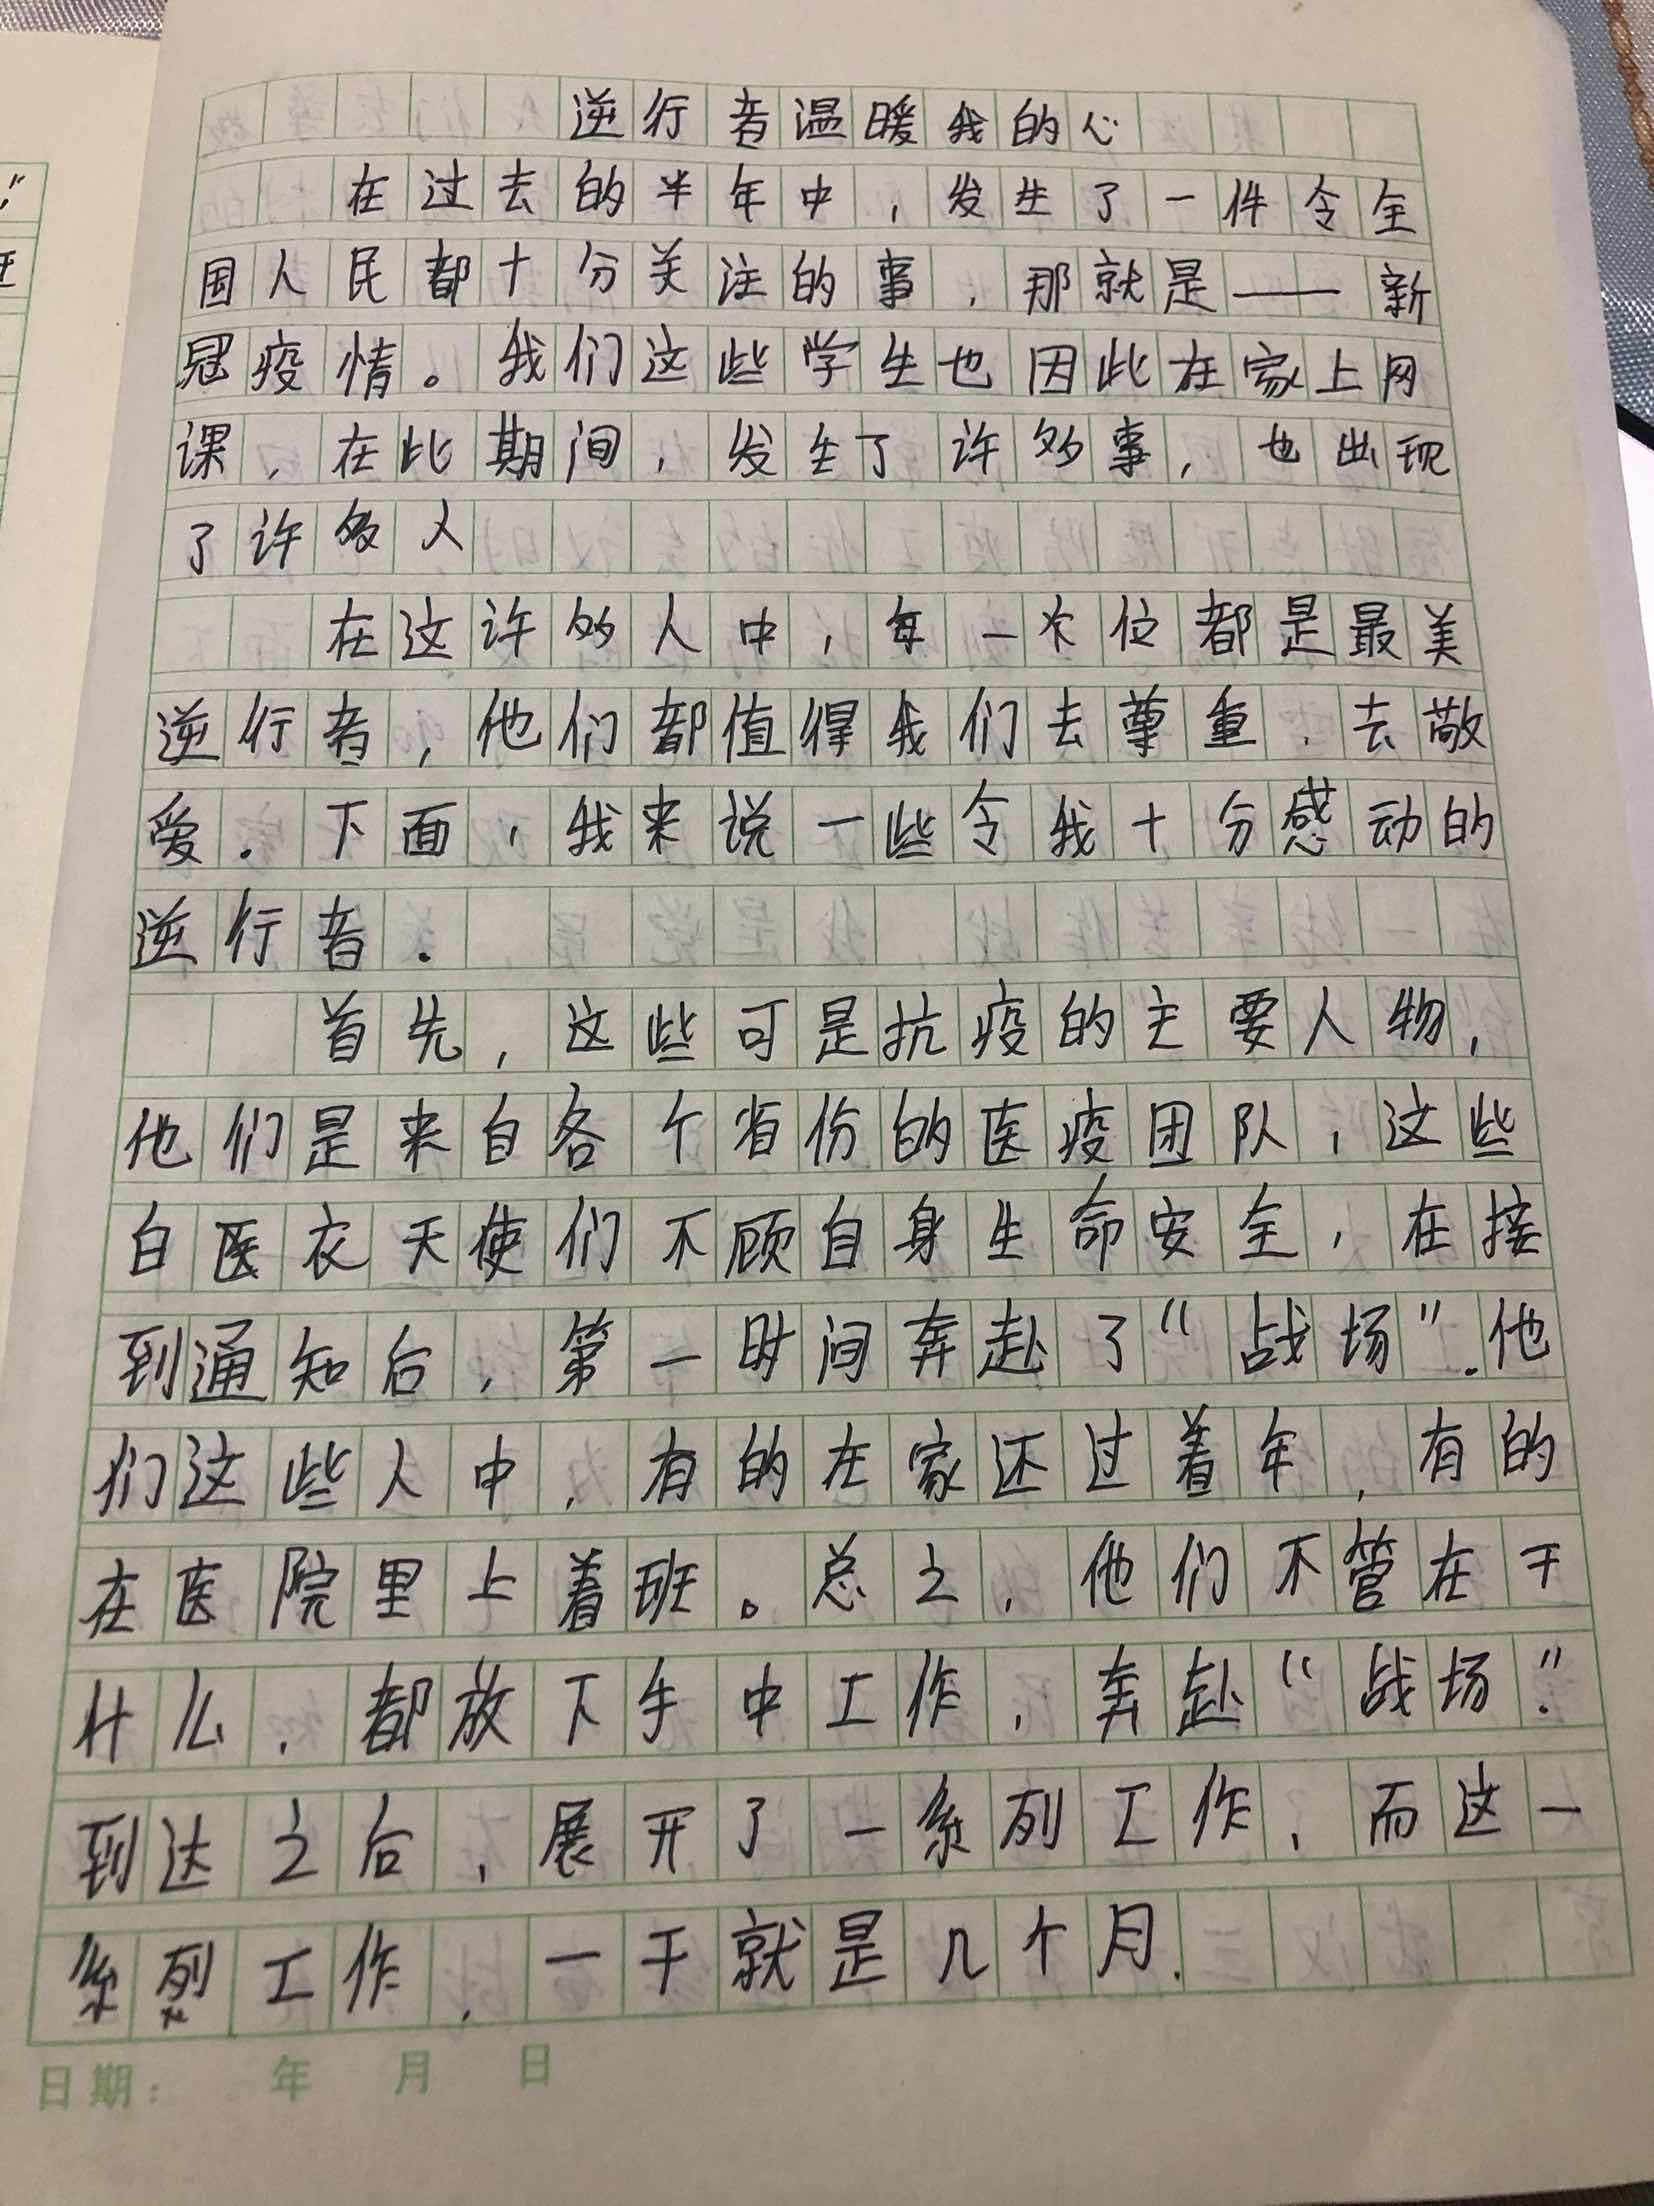 逆行者温暖我的心
在过去的半年中，发生了一件令全
国人民都十分关注的事，那就是——新
冠疫情。我们这些学生也因此在家上网
课，在此期间，发生了许多事，也出现
了许多人
在这许多人中，每一个位都是最美
逆行者，他们都值得我们去尊重，去敬
爱.下面，我来说一些令我十分感动的
逆行者.
首先，这些可是抗疫的主要人物，
他们是来自各个省份的医疫团队，这些
白医衣天使们不顾自身生命安全，在接
到通知后，第一时间奔赴了“战场”.他
们这些人中，有的在家还过着年，有的
在医院里上着班。总之，他们不管在干
什么，都放下手中工作，奔赴“战场”.
到达之后，展开了一系列工作，而这一
系列工作，一干就是几个月.
日期： 年 月 日